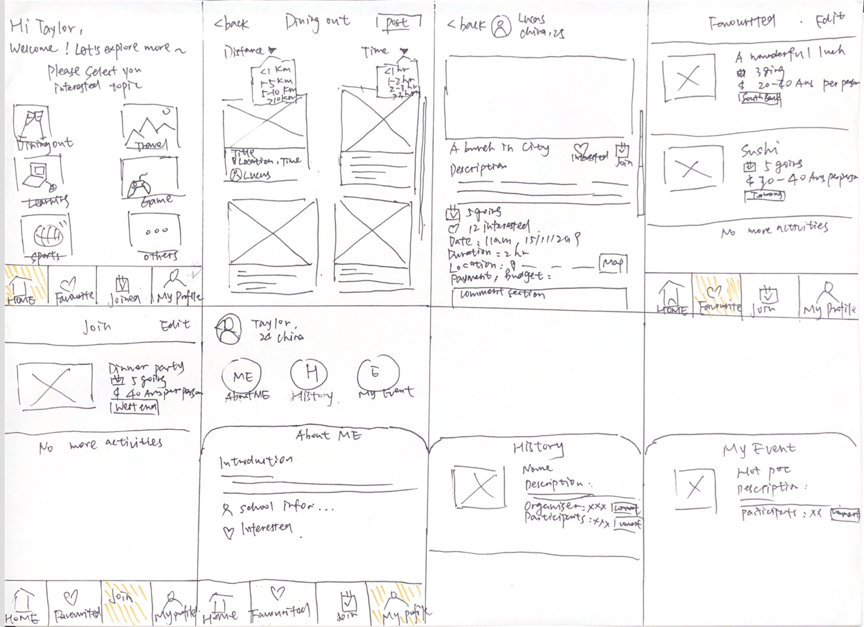 Hi Taylor,
Welcome! Let's explore more ~
Please select you
interested topic
Dining out
Travel
Learning
Game
sports
others
HOME
Favourite
Joined
My Profile
<back
Dining out
post
Distance
Time
<1 km
1-5 km
5-10 km
>10 km
<1 hr
1-2 hr
2-3 hr
Title
Location, Time
Lucus
<back
Lucas
china, 25
A bunch in City
Interested
Join
Description
5 goins
12 interested
Date: 11am, 15/11/2019
Duration = 2 hr
Location:
Map
Payment, Budget:
Comment section
Favourited
Edit
A wonderful lunch
3 going
$ 20-40 Aus per person
South Bank
Sushi
5 goins
$ 30-40 Aus per person
Toowong
No more activities
HOME
Favourite
Join
My Profile
Join
Edit
Dinner party
5 goins
$ 40 Aus per person
West end
No more activities
HOME
Favourited
Join
My profile
Taylor,
24 China
ME
H
E
About ME
History
My Event
About ME
Introduction
school infor...
Interested
Home
Favourited
Join
My profile
History
Name
Description:
Organiser: xxx
Participants: xxx
My Event
Hot pot
Description:
participants: xx